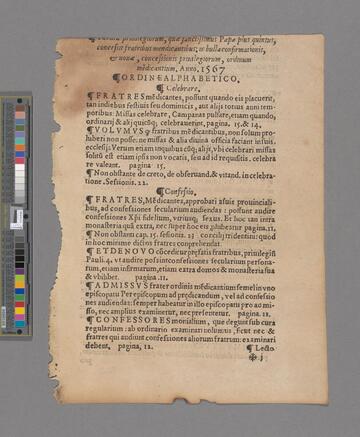 priuilegiorum, quæ sanctissimus Papa pius quintus,
concessit fratribus mendicantibus; in bulla confirmationis,
& nouæ, concessionis priuilegiorum, ordinum
mēdicantium. Anno. 1567
¶ ORDINE ALPHABETICO.
¶ Celebrare.
¶ FRATRES mēdicantes, possunt quando eis placuerit,
tan indiebus festiuis seu dominicis, aut alijs totius anni tem-
poribus: Missas celebrare, Campanas pulsare, etiam quando,
ordinarij & alij quicūq; celebrauerint, pagina. 15. & 14.
¶ VOLVMVS q̄ fratribus mēdicantibus, non solum pro-
hiberi non posse: ne missas & alia diuina officia faciant insuis,
ecclesijs: Verum etiam inquibus cūq; alijs, vbi celebrari missas
solitū est etiam ipsis non vocatis, seu ad id requisitis. celebra
re valeant. pagina 15.
¶ Non obstante de creto, de obseruand. & vitand. in celebra-
tione. Sessionis. 22.
¶ Confessio.
¶ FRATRES, Mēdicantes, approbati à suis prouinciali-
bus, ad confessiones secularium audiendas: possunt audire
confessiones Xp̄i fidelium, vtriusq; sexus. Et hoc tan intra
monasteria quā extra, nec super hoc eis p̄hibeatur pagina. 11.
¶ Non obstant. cap. 15. sesionis. 23 concilij tridentini: quod
in hoc minime dictos fratres comprehendat.
¶ ET DE NOVO cōceditur pręfatis fratribus, priuilegiū
Pauli. 4. vt audire possint confessiones secularium persona-
rum, etiam infirmarum, etiam extra domos & monasteria sua
& vbilibet. pagina. 11.
¶ ADMISSVS frater ordinis mēdicantium semel in vno
episcopatu Per episcopum ad prędicandum, vel ad confessio
nes audiendas: semper habeatur in illo episcopatu pro admis-
so, nec amplius examinetur, nec presentetur. pagina. 12.
¶ CONFESSORES monialium, que degunt sub cura
regularium: ab ordinario examinari volumus, sicut nec &
fratres qui audiunt confessiones aliorum fratrum: examinari
debent, pagina, 12.
¶ Lecto
✠ j